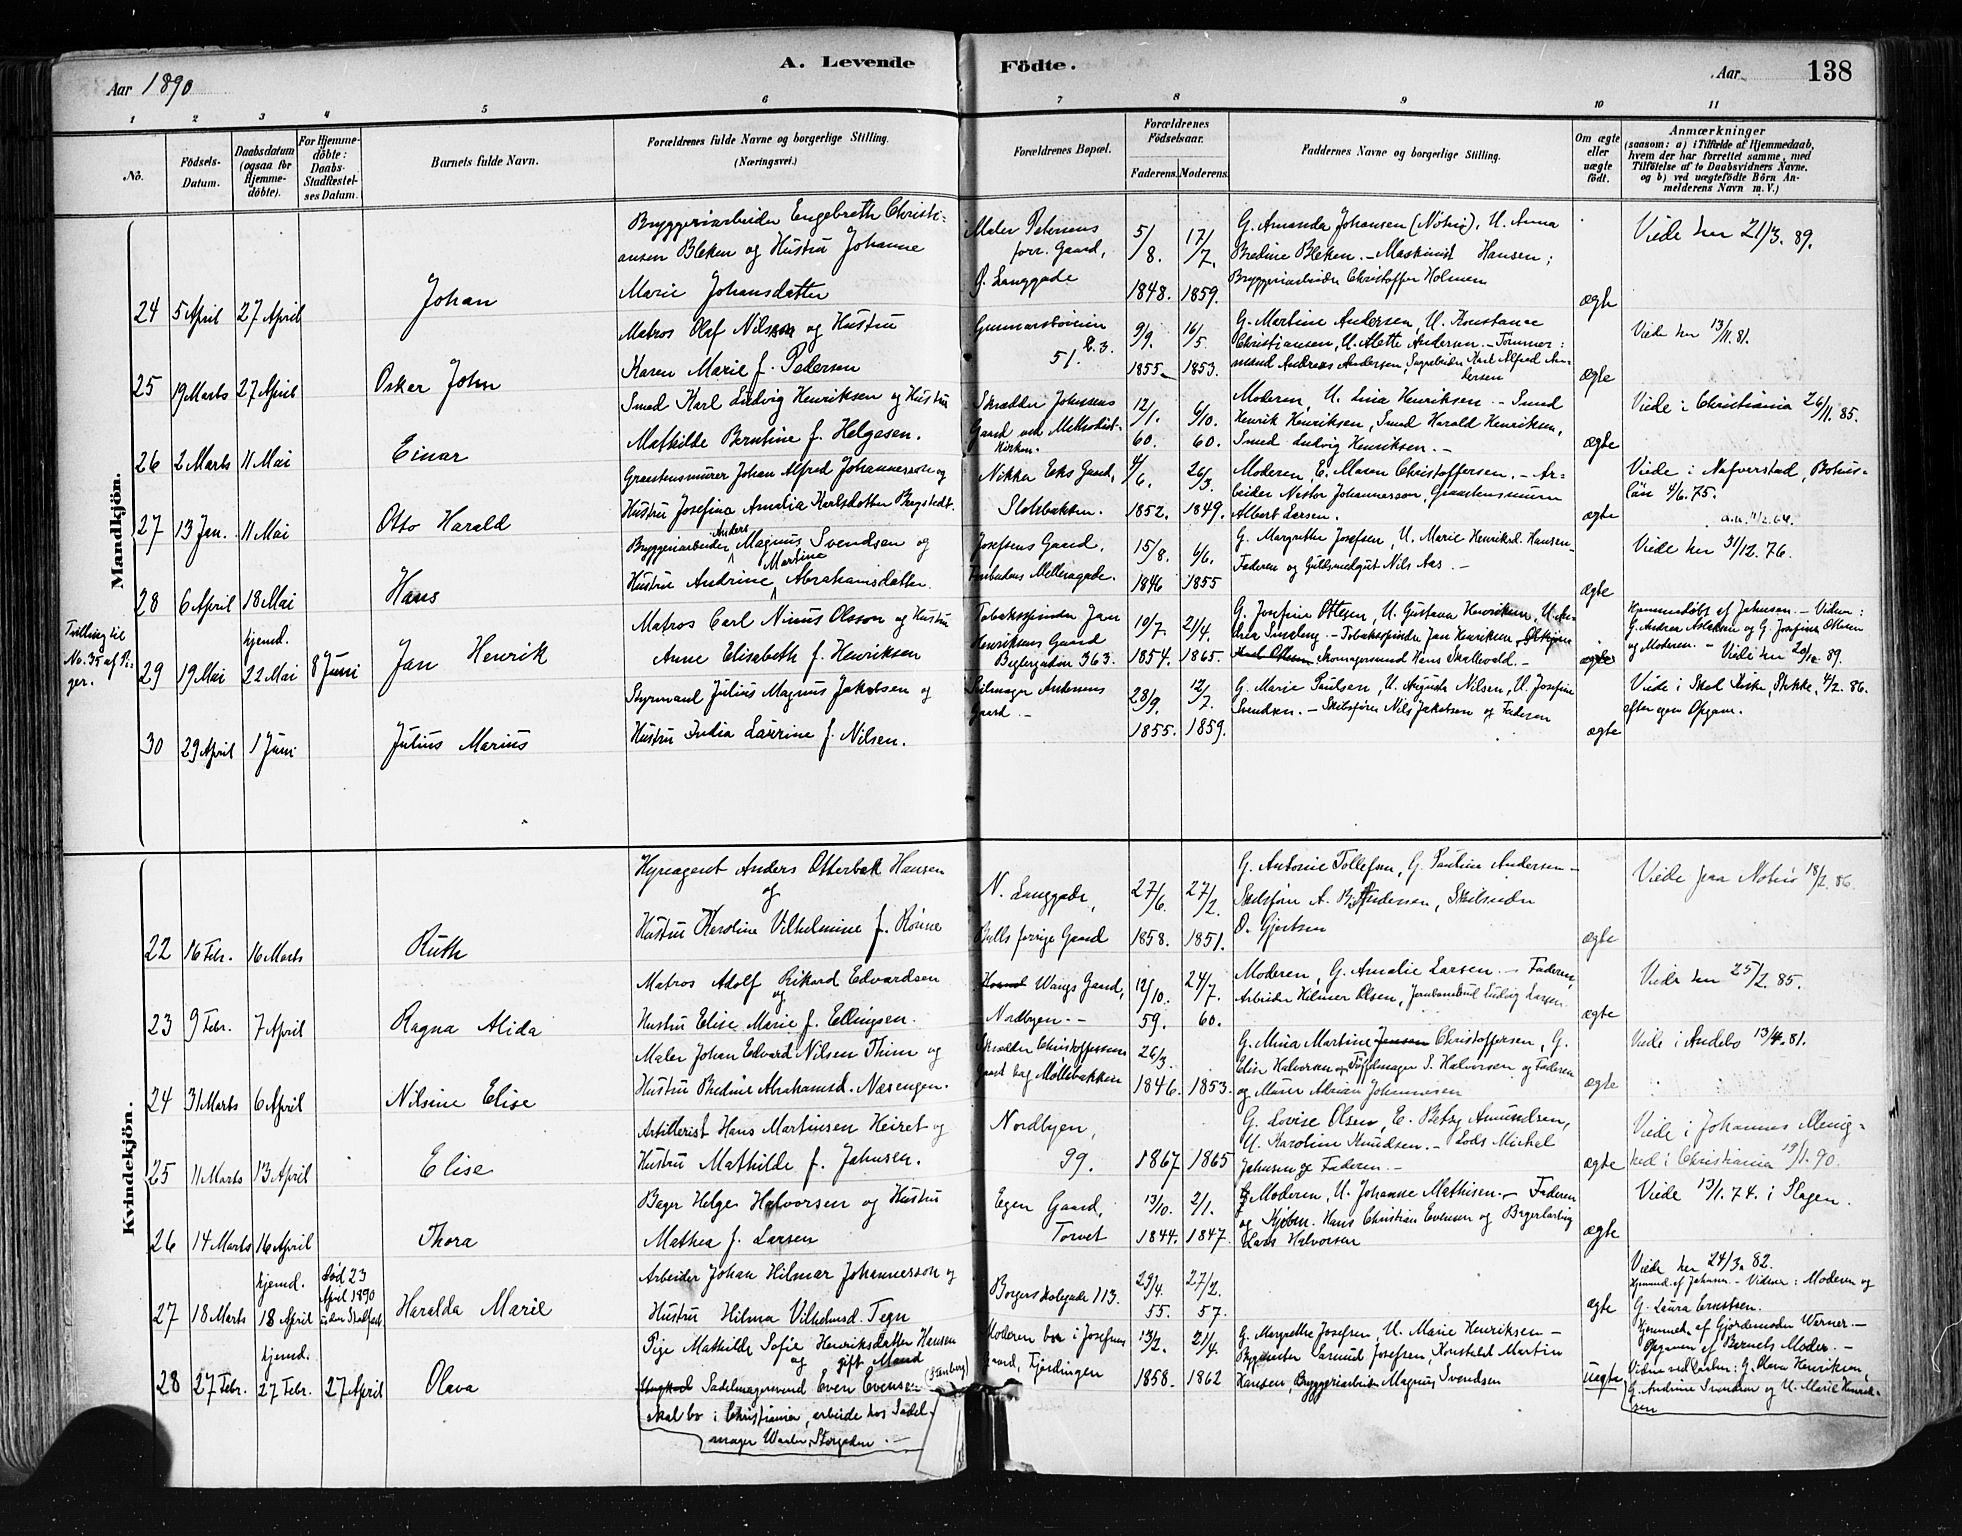 A. Levende Födte.
Aar 1890
Aar
138
1 2 3 4 5 6 7 8 9 10 11
No.
Födsels-Datum.
Daabsdatum (ogsaa for Hjemme-döbte).
For Hjemme-döbte: Daabs-Stadfæstel-ses Datum.
Barnets fulde Navn.
Forældrenes fulde Navne og borgerlige Stilling.
(Næringsvei.)
Forældrenes Bopæl.
Forældrenes Födselsaar.
Faderens. Moderens.
Faddernes Navne og borgerlige Stilling.
Om ægte eller uægte födt.
Anmærkninger
(saasom: a) i Tilfælde af Hjemmedaab,
hvem der har forrettet samme, med
Tilföielse af to Daabsvidners Navne,
og b) ved uægtefödte Börn An-
melderens Navn m. V.)
Mandkjön.
24 5 April 27 April
Johan
Bryggeriarbeider Engebreth Christi-
ansen Bleken og Hustru Johanne
Marie Johansdatter
Maler Petersens
forr. Gaard,
Ø. Langgade
5/8. 1848.
17/7. 1859.
G. Amanda Johansen (Nötrö), U. Anna
Bredine Bleken. – Maskinist Hansen;
Bryggeriarbeider Christoffer Holmen
ægte
Viede her 21/3. 89.
25 19 Marts 27 April
Oskar John
Matros Olaf Nilsson og Hustru
Karen Marie f. Pedersen
51.
9/9. 1855
16/5. 1853.
G. Martine Andersen, U. Konstance
Christiansen, U. Alette Andersen. – Tömmer:
mand Andreas Andersen Karl Alfred An-
dersen
ægte
Viede her 13/11. 81.
26 2 Marts 11 Mai
Einar
Smed Karl Ludvig Henriksen og Hustru
Mathilde Berntine f. Helgesen.
Skrædder Johnsens
Gaard ved Methodist-
kirken.
12/1. 60.
6/10. 60.
Moderen, U. Lina Henriksen. – Smed
Henrik Henriksen, Smed Harald Henriksen,
Smed Ludvig Henriksen. –
ægte
Viede i Christiania 26/11. 85.
27 13 Jan. 11 Mai
Otto Harald
Graastensmurer Johan Alfred Johannesson og
Hustru Josefina Amalia Karlsdotter Bergstedt.
Nikka Eks Gaard,
Slotsbakken.
4/6. 1852.
26/3. 1849.
Moderen, E. Maren Christoffersen. – Ar-
beider Nestor Johannesson, Graastensmurer
Albert Larsen.
ægte
Viede i Nafverstad, Bohus-
län 4/6. 75.
28 6 April 18 Mai
Hans
Bryggeriarbeider Anders Magnus Svendsen og
Hustru Andrine Martine Abrahamsdatter.
Josefsens Gaard,
15/8. 1846
6/6. 1855
G. Margrethe Josefsen, U. Marie Henriksd. Hansen –
Faderen og Nils Aas. –
ægte
Viede her 31/12. 76.
Tvilling til
No. 35 af Pi-
ger.
29 19 Mai hjemd. 22 Mai 8 Juni
Jan Henrik
Matros Carl Ninus Olsson og Hustru
Anne Elisabeth f. Henriksen
Tobaksspinder Jan
Henriksens Gaard
363.
19/7. 1854.
21/4. 1865.
G. Josefine Ottesen, U. Gustava Henriksen,
– Tobaksspinder Jan Henriksen,
Skomagersvend Hans Skallevold. –
ægte
Hjemmedöbt af Johnsen. – Vidner:
G. Andrea Aslaksen og G. Josefine Ottesen
og Moderen. – Viede her 20/10. 89.
30 29 April 1 Juni
Julius Marius
Styrmand Julius Magnus Jakobsen og
Hustru India Laurine f. Nilsen.
Seilmager Andersens
Gaard –
28/9. 1855.
12/7. 1859.
G. Marie Paulsen, U. Augusta Nilsen, U. Josefine
Svendsen. – Skibsförer Nils Jakobsen og Faderen
ægte
Viede i Skee Kirke, 4/2. 86.
efter egen Opgave.
Kvindekjön.
22 16 Febr. 16 Marts
Ruth
Hyreagent Anders Otterbek Hansen
og
Hustru Karoline Vilhelmine f. Rönne
N. Langgade,
Bulls forrige Gaard
27/6. 1858.
27/2. 1851.
G. Antonie Tollefsen, G. Pauline Andersen –
Skibsförer A. B. Andersen, Skibsreder
O. Gjertsen
ægte
Viede paa Nöterö 18/2. 86.
23 9 Febr. 7 April
Ragna Alida
Matros Adolf Rikard Edvardsen
og
Hustru Elise Marie f. Ellingsen.
Wangs Gaard,
Nordbyen. –
12/10. 59.
24/7. 60.
Moderen, G. Amalie Larsen. – Faderen,
Arbeider Hilmer Olsen, Ludvig Larsen
ægte
Viede her 25/2. 85.
24 31 Marts 6 April
Nilsine Elise
Maler Johan Edvard Nilsen Thim og
Hustru Bredine Abrahamsd. Næsengen.
Skrædder Christoffersens
Gaard bag Möllebakken
26/3. 1846.
1853.
G. Mina Martine Jensen Christoffersen, G.
Elise Halvorsen og S. Halvorsen og Faderen
og Murer Adrian Johannesen
ægte
Viede i Andebo 13/4. 81.
25 11 Marts 13 April
Elise
Artillerist Hans Martinsen Heiret og
Hustru Mathilde f. Jahnsen.
Nordbyen,
99.
1867
1865
G. Lovise Olsen, E. Betsy Amundsen,
U. Karoline Knudsen. – Lods Michel
Jahnsen og Faderen. –
ægte
Viede i Johannes Menig-
hed i Christiania 19/1. 90.
26 14 Marts 16 April
Thora
Bager Helge Halvorsen og Hustru
Mathea f. Larsen
Egen Gaard,
Torvet
13/10. 1844.
2/1. 1847.
Moderen, U. Johanne Mathisen. – Faderen
og Kjöbm. Hans Christian Evensen og Bagerlærling
Lars Halvorsen
ægte
Viede 13/1. 74. i Slagen.
27 18 Marts hjemd. 18 April
Död 23 April 1890 uden Stadfæst.
Haralda Marie
Arbeider Johan Hilmar Johannesson og
Hustru Hilma Vilhelmsd. Tegn
Borgerskolegade 113.
29/4. 55.
27/2. 57.
ægte
Viede her 24/3. 82.
Hjemmd. af Johnsen. – Vidner: Moderen og
G. Laura Ernstsen.
28 27 Febr. hjemd. 27 Febr. 27 April
Olava
Pige Mathilde Sofie Henriksdatter Hansen
og gift Mand
Ungkarl Sadelmagersvend Even Evensen (Stenberg)
skal bo i Christiania, arbeide hos Sadel-
mager Waaler, Storgaden. –
Moderen bor i Josefsens
Gaard, Fjerdingen
13/2. 1858.
21/4. 1862
G. Margrethe Josefsen, U. Marie Henriksen –
Josefsen, Konstabel Martin
Hansen, Bryggeriarbeider Magnus Svendsen
uægte
Hjemmed. af Gjordemoder Werner. –
Opgaven af Barnets Moder. –
Vidner ved Daaben: G. Olava Henriksen,
G. Andrine Svendsen og U. Marie Henrik-
sen